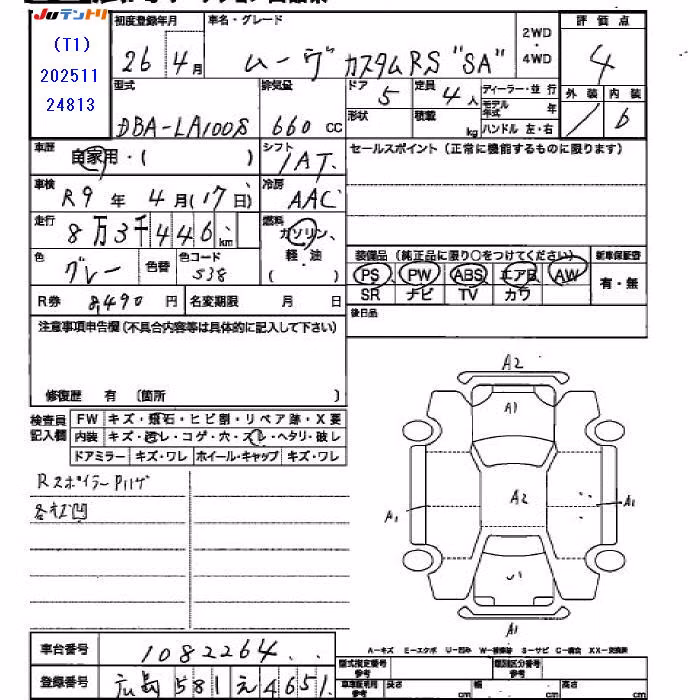 Juテントリ
(T1)
202511
24813
初度登録年月
26 4月
車名・グレード
ムーヴ カスタムRS "SA"
2WD
・
4WD
評価点
4
型式
DBA-LA100S
排気量
660 cc
ドア
5
形状
定員
4人
積載
kg
ディーラー・並行
モデル年式 年
ハンドル 左・右
外装 内装
b
車歴
自家用・( )
シフト
IAT
セールスポイント(正常に機能するものに限ります)
車検
R9年 4月(17日)
冷房
AAC
走行
8万3千446 km
燃料
ガソリン、
軽・油
( )
色
グレー
色替
色コード
S38
装備品 (純正品に限り○をつけてください)
新車保証書
PS PW ABS エアB AW
有・無
SR ナビ TV カワ
R券 8,490円
名変期限 月 日
後日品
注意事項申告欄(不具合内容等は具体的に記入して下さい)
修復歴 有 〔箇所 〕
検査員
記入欄
FW キズ・飛石・ヒビ割・リペア跡・X要
内装 キズ・汚レ・コゲ・穴・スレ・ヘタリ・破レ
ドアミラー キズ・ワレ ホイール・キャップ キズ・ワレ
Rスポイラー P
A2
A1
A2
A1
A1
A1
A-キズ E-エクボ U-凹み W-補修跡 S-サビ C-腐食 XX-交換済
車台番号
1082264
登録番号
広島 581 え 4651
型式指定番号
参考
類別区分番号
参考
車庫証明用
参考
長さ cm 幅 cm 高さ cm